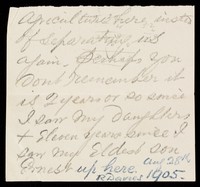 Agriculture here, instea
of separations, and
again. Perhaps you
dont remember it
is 2 years or so since
I saw my Daughters
+ Eleven years since I
saw my Eldest son
Ernest up here. Aug 28th
R. Davies 1905.